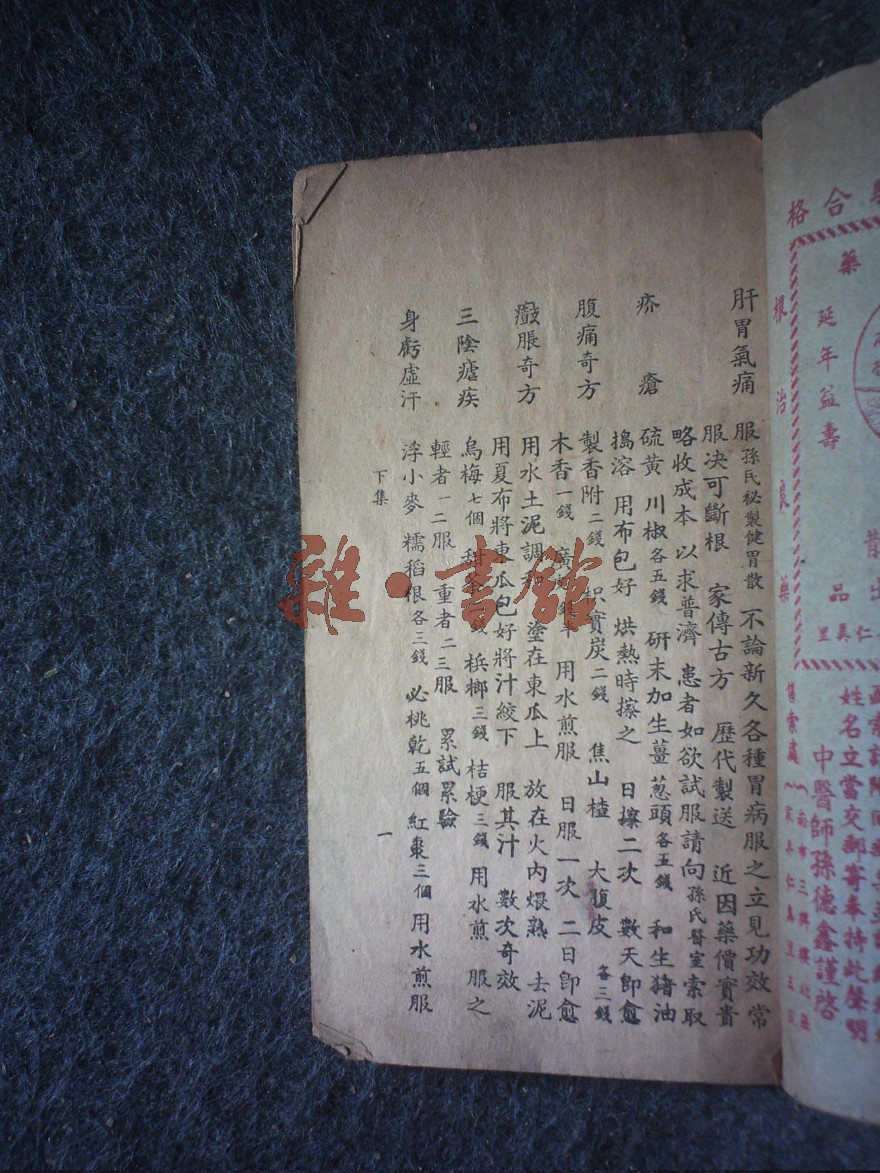 肝胃氣痛 服孫氏秘製健胃散 不論新久各種胃病服之立見功效常
服决可斷根 家傳古方 歷代製送 近因藥價實貴
略收成本 以求普濟 患者如欲試服請向孫氏醫室索取
疥瘡 硫黄 川椒各五錢 研末加生薑葱頭各五錢 和生猪油
搗溶 用布包好 烘熱時擦之 日擦二次 數天即愈
腹痛奇方 製香附二錢 枳實炭二錢 焦山楂 大腹皮各三錢
木香一錢 用水煎服 日服一次 二日即愈
臌脹奇方 用水土泥調和 塗在東瓜上 放在火內煨熟 去泥
用夏布將東瓜包好將汁絞下 服其汁 數次奇效
三陰瘧疾 烏梅七個 甜茶 錢 梹榔三錢 桔梗三錢 用水煎 服之
輕者一二服 重者二三服 累試累驗
身虧虛汗 浮小麥 糯稻根各三錢 必桃乾五個 紅棗三個 用水煎服
下集 一
雜·書館
合格
根治良藥
藥
延年益壽
散
品
仁美里
售索處
姓名立當交郵寄奉特此聲明
中醫師孫德鑫謹啓